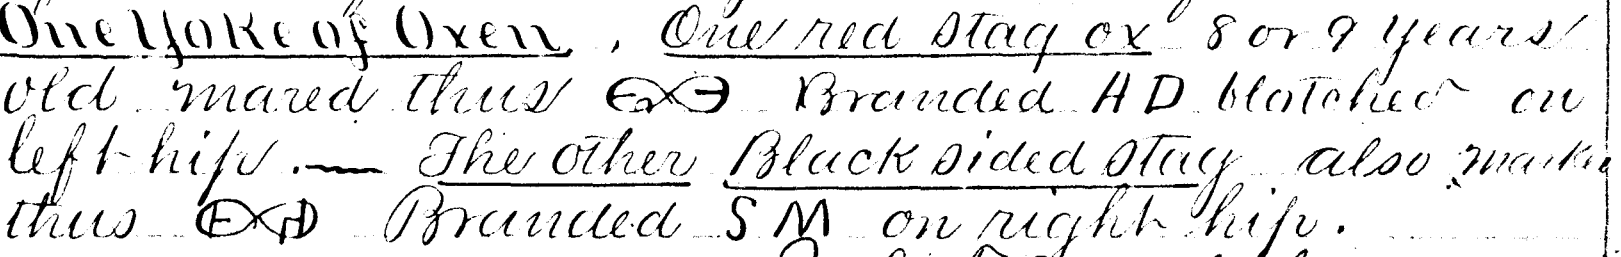 One Yoke of Oxen, One red stag ox 8 or 9 years
old mared thus Branded AD blotched on
left hip. — The other Black sided stag also
thus Branded SM on right hip.